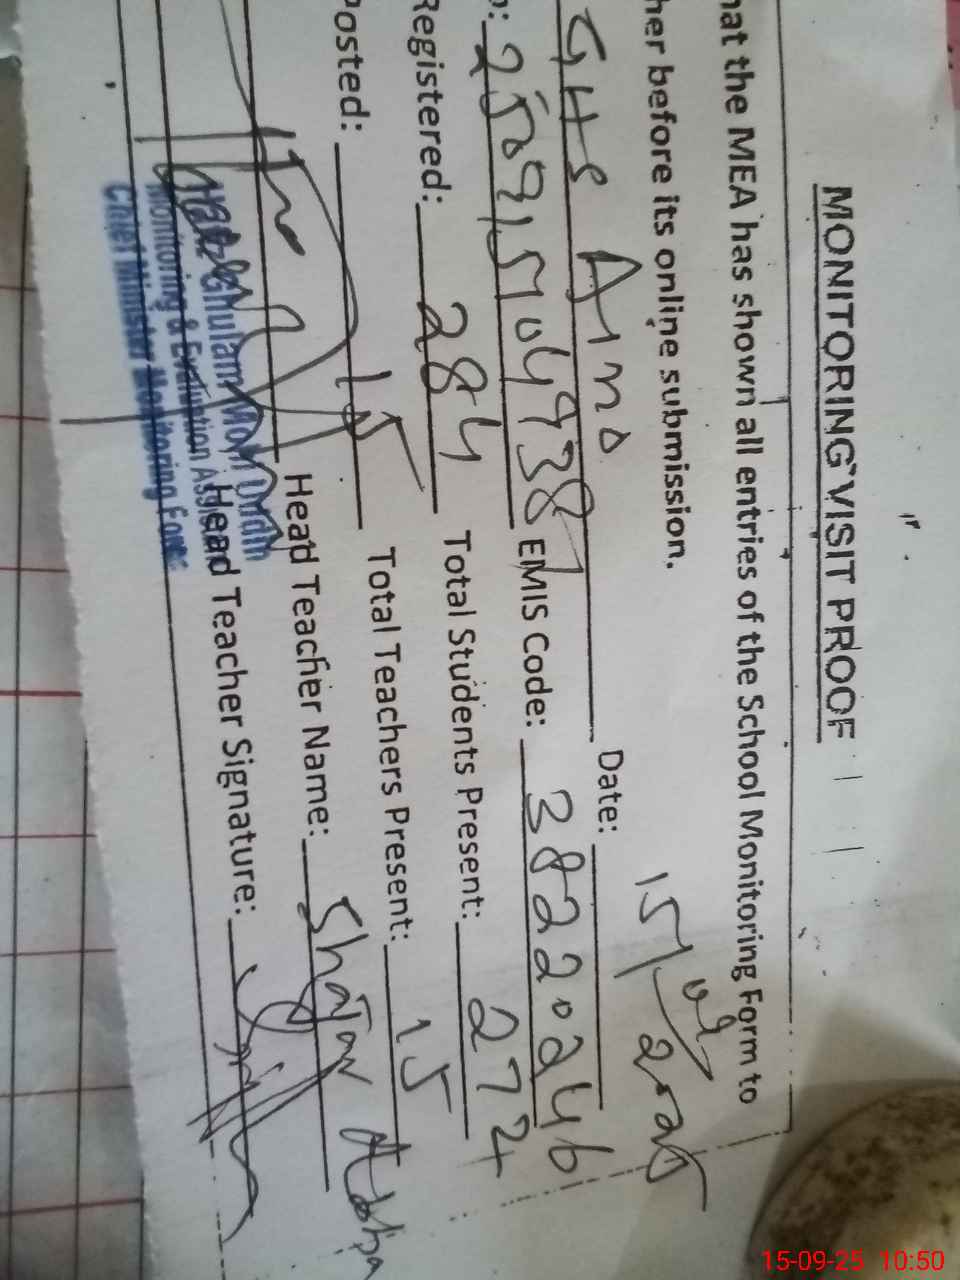 MONITORING VISIT PROOF
hat the MEA has shown all entries of the School Monitoring Form to
her before its online submission.
GHS Date: 15/09/2025
: EMIS Code: 38220246
Registered: 284 Total Students Present: 272
Posted: 15 Total Teachers Present: 15
Head Teacher Name:
Head Teacher Signature:
Hafiz Ghulam Moh ud din
Monitoring & Evaluation Assistant
Chief Minister Monitoring Force
15-09-25 10:50